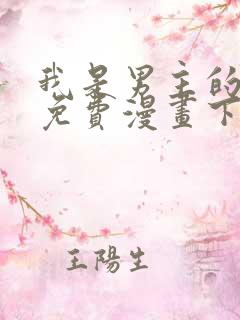 我是男主的
免費漫畫下
王陽生